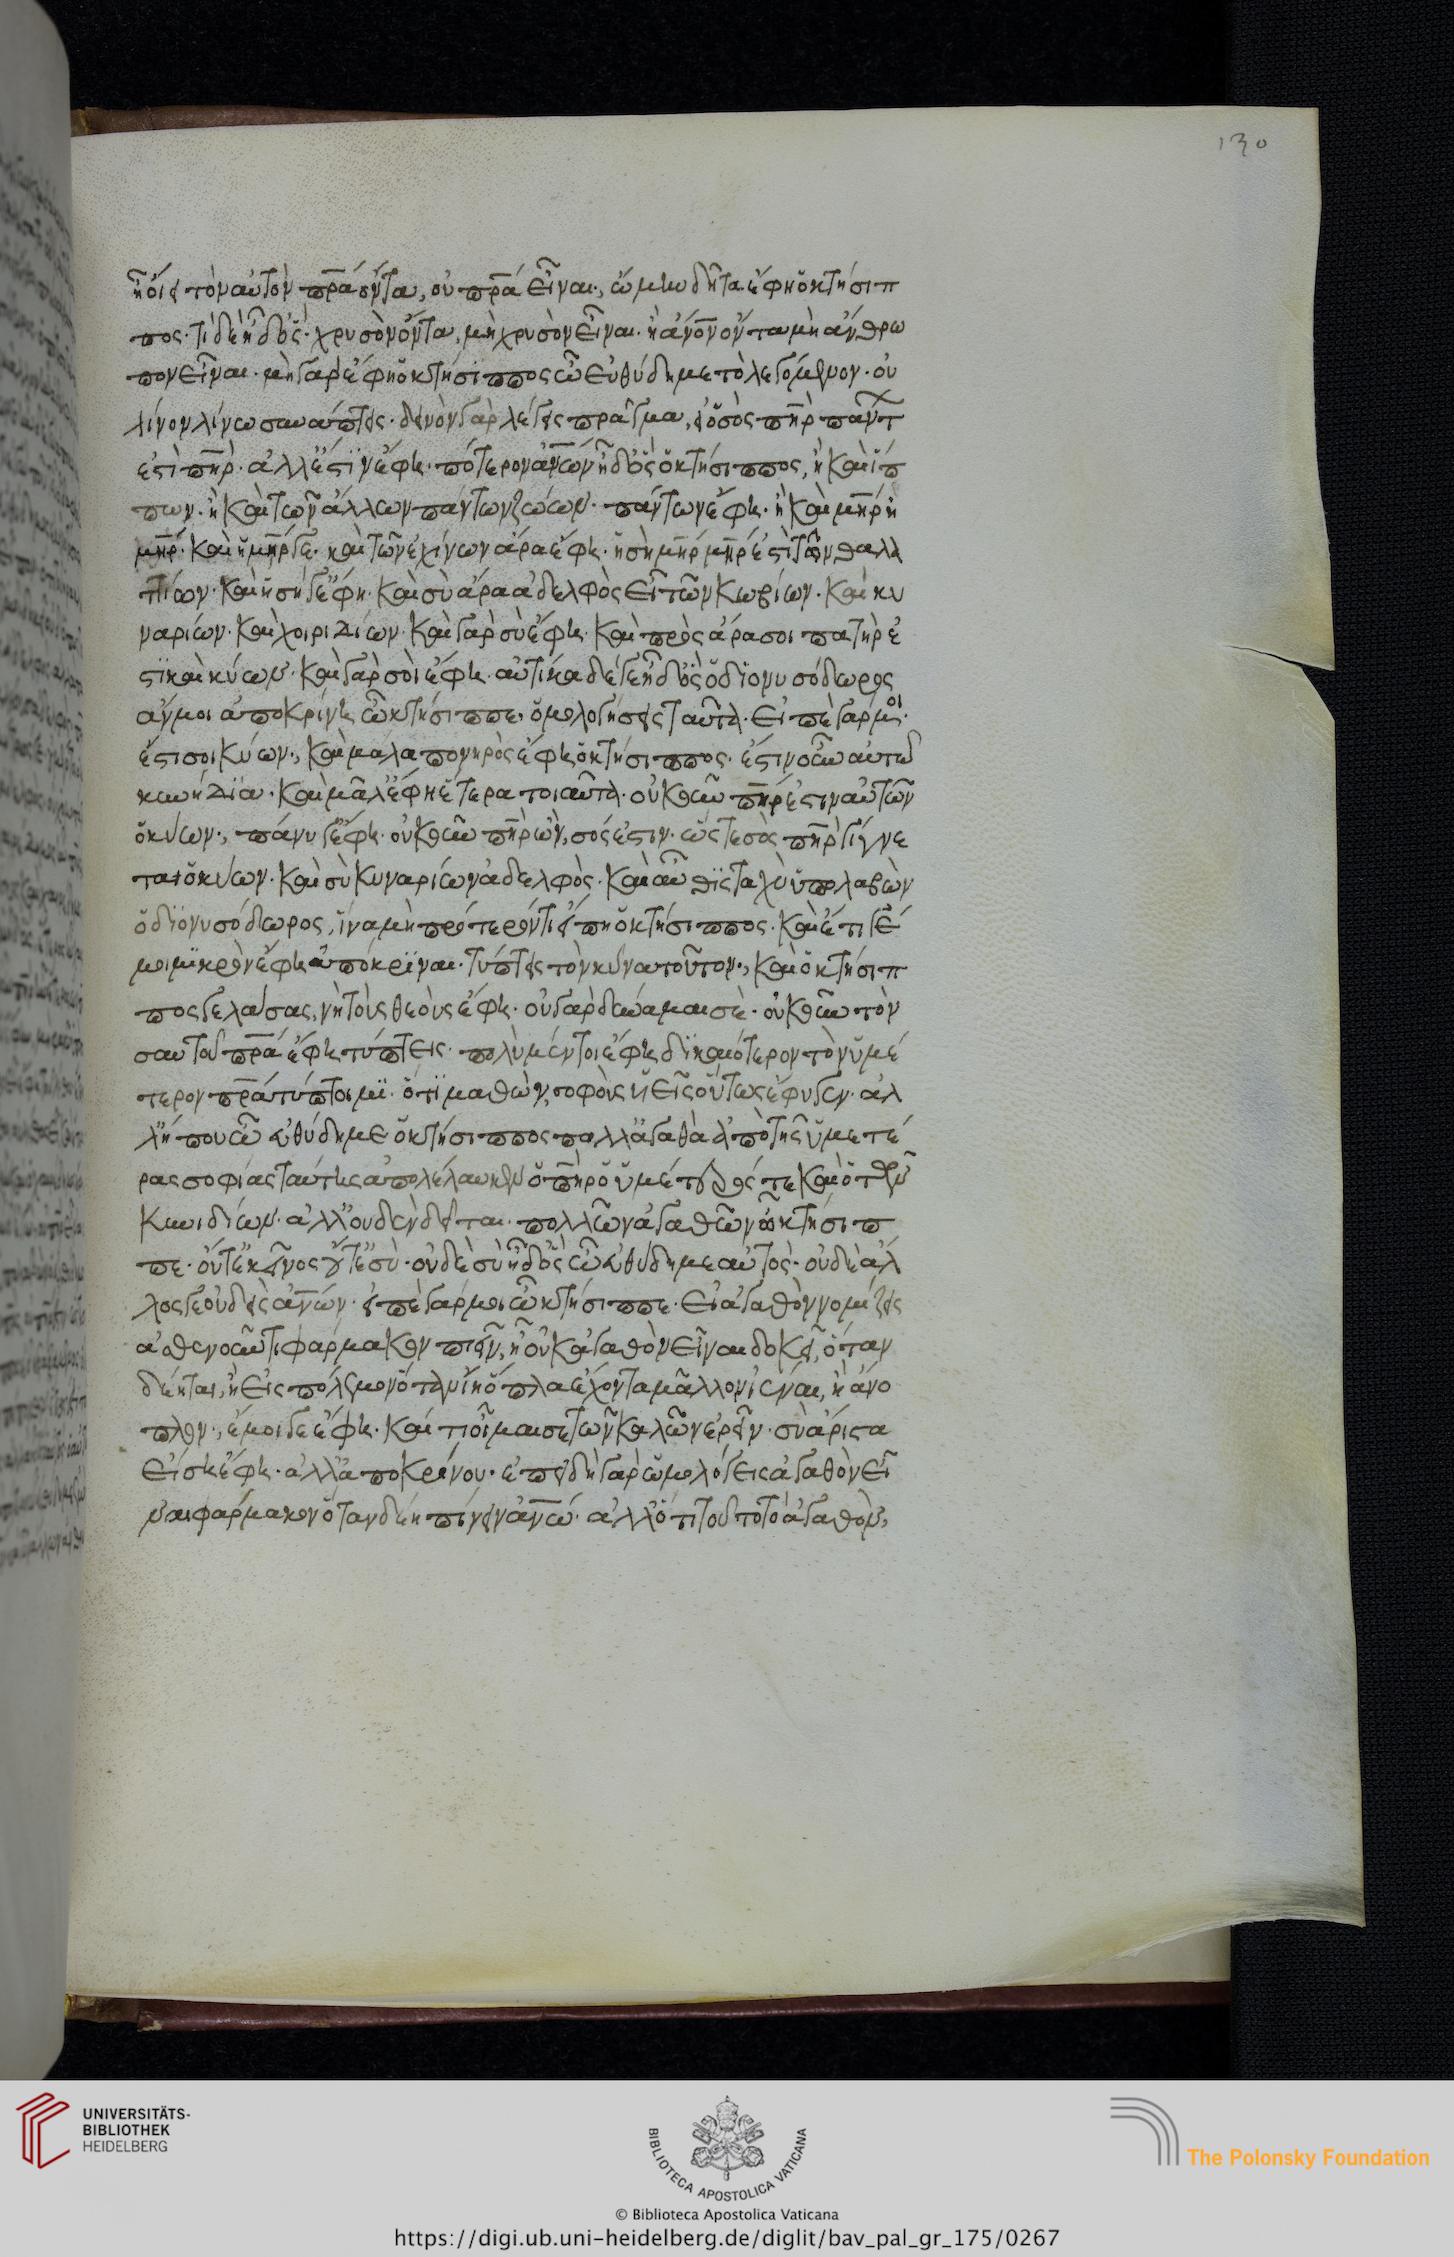 ἢ οἴει τὸν αὐτὸν πρ̅α ὄντα, οὐ πρ̅α εἶναι., ὤμην δῆτα ἔφη ὁ κτήσιπ
πος· τί δὲ ἦ δ' ὅς· χρυσὸν ὄντα, μὴ χρυσὸν εἶναι· ἢ ἄνο̅ν ὄντα μὴ ἄνθρω
πον εἶναι· μὴ γὰρ ἔφη ὁ κτήσιππος ὦ εὐθύδημε τὸ λεγόμενον· οὐ
λίνον λίνω συνάπτεις· δεινὸν γὰρ λέγεις πρᾶγμα, εἰ ὁ σὸς πη̅ρ πάντ
ἐστὶ πη̅ρ· ἀλλ' ἔστιν ἔφη· πότερον ἀν̅ων ἦ δ' ὃς ὁ κτήσιππος, ἢ καὶ ἵπ
πων· ἢ καὶ τῶν ἄλλων πάντων ζώων· πάντων ἔφη· ἢ καὶ μη̅ρ ἡ
μη̅ρ· καὶ ἡ μη̅ρ γε· καὶ τῶν ἐχίνων ἄρα ἔφη· ἡ σὴ μη̅ρ μη̅ρ ἐστὶ τῶν θαλα
ττίων· καὶ ἡ σή γ' ἔφη· καὶ σὺ ἄρα ἀδελφὸς εἶ τῶν κωβίων· καὶ κυ
ναρίων· καὶ χοιριδίων· καὶ γὰρ σὺ ἔφη· καὶ πρὸς ἄρα σοι πατὴρ ἐ
στὶ καὶ κύων· καὶ γὰρ σοὶ ἔφη· αὐτίκα δέ γε ἦ δ' ὃς ὁ διονυσόδωρος
ἄν μοι ἀποκρίνη ὦ κτήσιππε· ὁμολογήσεις ταῦτα· εἰπὲ γάρ μοι·
ἔστι σοι κύων., καὶ μάλα πονηρὸς ἔφη ὁ κτήσιππος· ἔστιν οὖν αὐτῶ
κυνήδια· καὶ μᾶλ' ἔφη ἕτερα τοιαῦτα· οὐκοῦν πη̅ρ ἐστιν αὐτῶν
ὁ κύων., πάνυ γ' ἔφη· οὐκοῦν πη̅ρ ὢν, σός ἐστιν· ὥστε σὸς πη̅ρ γίγνε
ται ὁ κύων· καὶ σὺ κυναρίων ἀδελφὸς· καὶ αὖθις ταχὺ ὑπολαβὼν
ὁ διονυσόδωρος, ἵνα μὴ πρότερόν τι εἴπη ὁ κτήσιππος· καὶ ἔτι γέ
μοι μικρὸν ἔφη ἀπόκριναι· τύπτεις τὸν κύνα τοῦτον., καὶ ὁ κτήσιπ
πος γελάσας, νὴ τοὺς θεοὺς ἔφη· οὐ γὰρ δύναμαι σὲ· οὐκοῦν τὸν
σαυτοῦ πρ̅α ἔφη τύπτεις· πολὺ μέντοι ἔφη δικαιότερον τὸν ὑμέ
τερον πρ̅α τύπτοιμι· ὅ τι μαθὼν, σοφοὺς υἱεῖς οὕτως ἔφυσεν· ἀλ
λ' ἤ που ὦ εὐθύδημε ὁ κτήσιππος πολλ' ἀγαθὰ ἀπὸ τῆς ὑμετέ
ρας σοφίας ταύτης ἀπολέλαυκεν ὁ πη̅ρ ὁ ὑμέτερός τε καὶ ὁ τῶν
κυνιδίων· ἀλλ' οὐδὲν δεῖται πολλῶν ἀγαθῶν ὦ κτήσιπ
πε· οὔτ' ἐκεῖνος οὔτε σὺ· οὐδὲ σὺ ἦ δ' ὃς ὦ εὐθύδημε αὐτὸς· οὐδὲ ἄλ
λος γε οὐδεὶς ἀν̅ων· εἰπὲ γάρ μοι ὦ κτήσιππε· εἰ ἀγαθὸν νομίζεις
ἀσθενοῦντι φάρμακον πιεῖν, ἢ οὐκ ἀγαθὸν εἶναι δοκεῖ, ὅταν
δέηται, ἢ εἰς πόλεμον ὅταν ἴη ὅπλα ἔχοντα μᾶλλον ἰέναι, ἢ ἄνο
πλον., ἔμοιγε ἔφη· καί τι οἶμαι σε τῶν καλῶν ἐρεῖν· σὺ ἄριστα
εἴση ἔφη· ἀλλ' ἀποκρίνου· ἐπειδὴ γὰρ ὡμολόγεις ἀγαθὸν εἶ
ναι φάρμακον ὅταν δέη πίνειν ἀν̅ω· ἄλλό τι τοῦτο τὸ ἀγαθὸν,
130
UNIVERSITÄTS-
BIBLIOTHEK
HEIDELBERG
BIBLIOTECA APOSTOLICA VATICANA
The Polonsky Foundation
© Biblioteca Apostolica Vaticana
https://digi.ub.uni-heidelberg.de/diglit/bav_pal_gr_175/0267